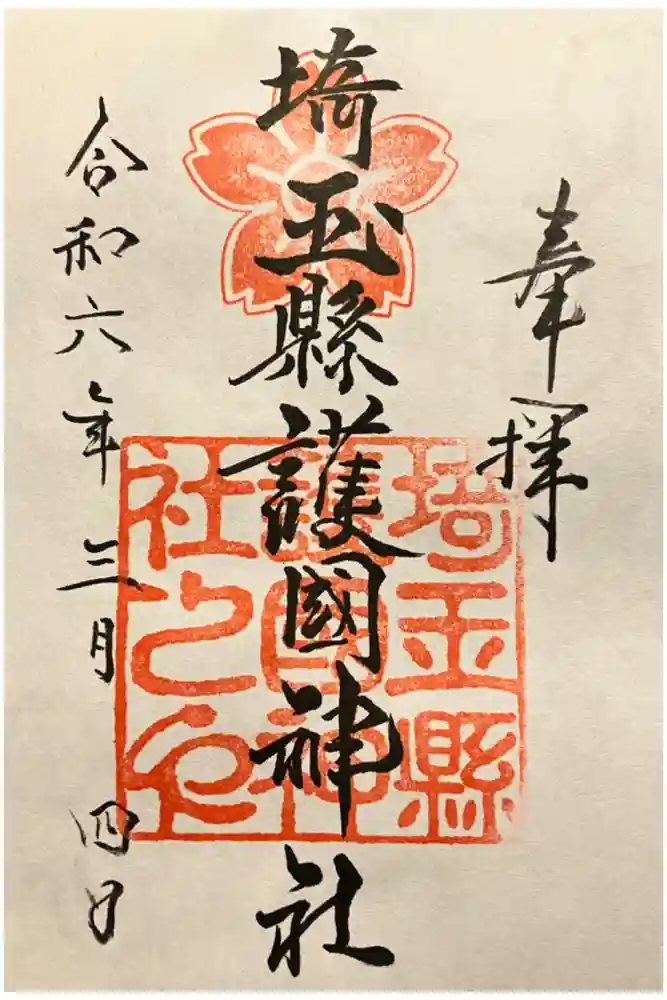 奉拝
埼玉縣護國神社
埼玉縣
護國神
社之印
令和六年三月四日